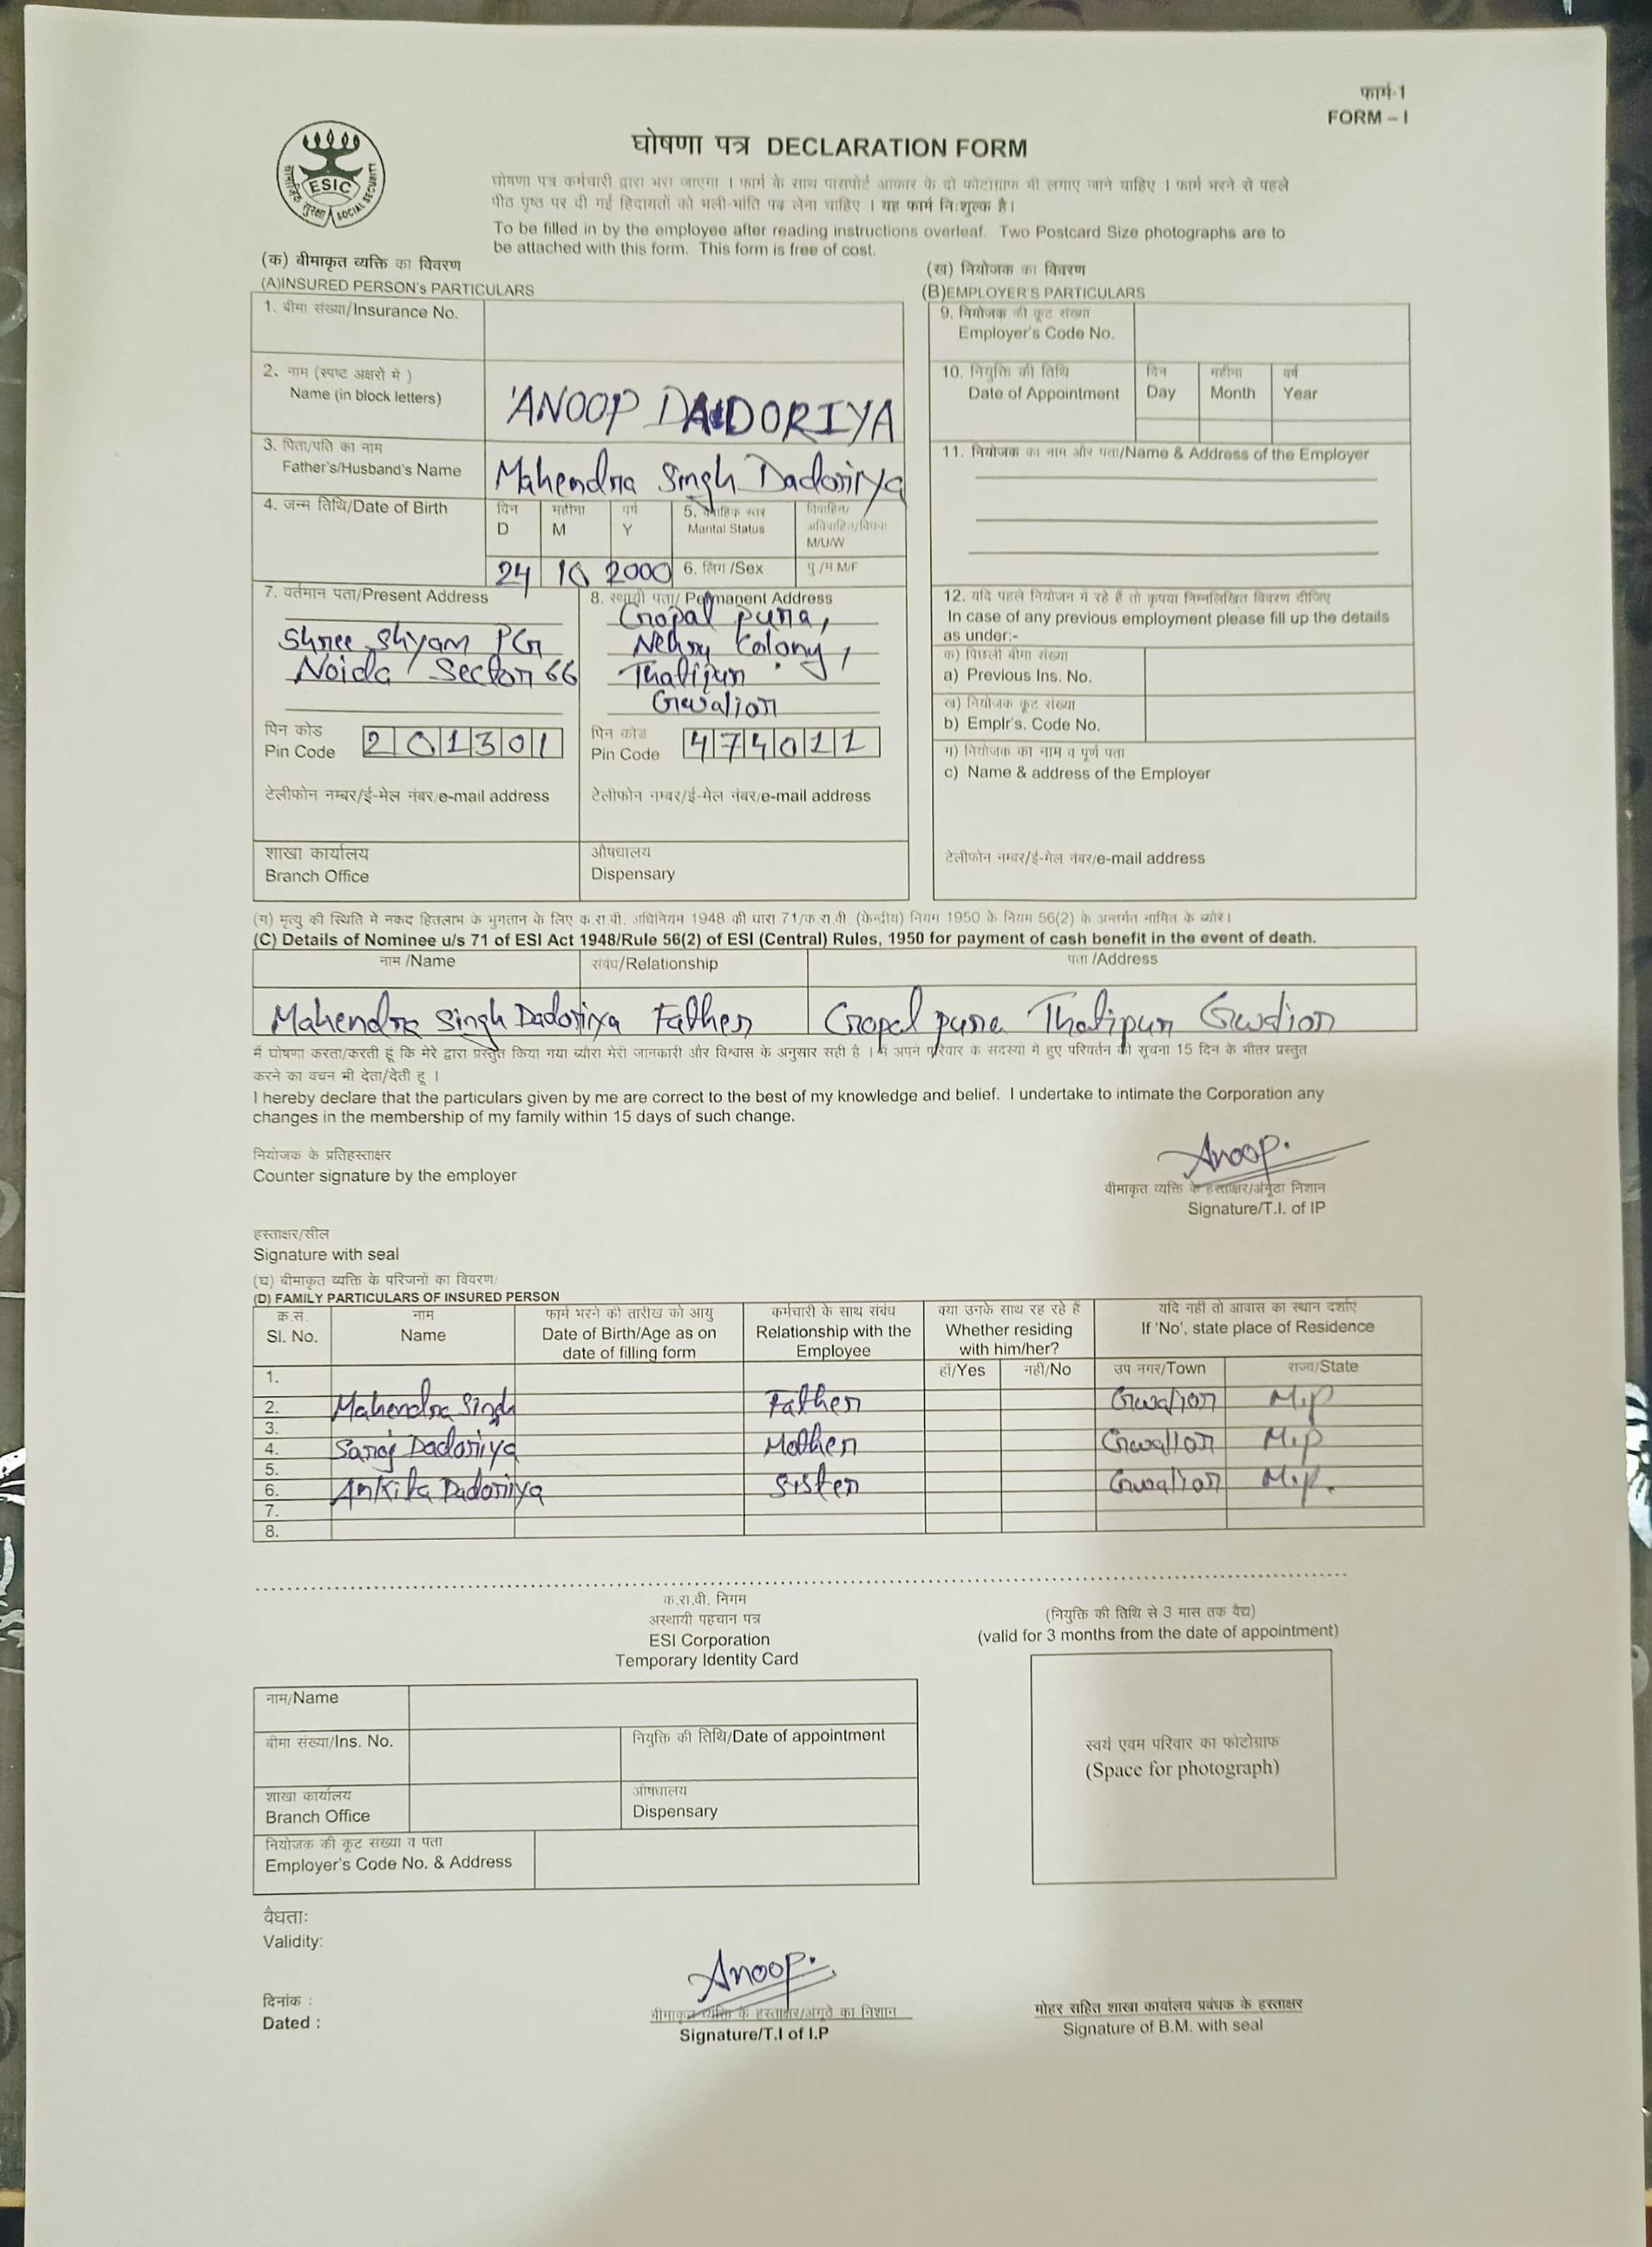 फार्म-1
FORM – I
घोषणा पत्र DECLARATION FORM
ESIC
सामाजिक सुरक्षा SOCIAL SECURITY
घोषणा पत्र कर्मचारी द्वारा भरा जाएगा । फार्म के साथ पासपोर्ट आकार के दो फोटोग्राफ भी लगाए जाने चाहिए । फार्म भरने से पहले
पीठ पृष्ठ पर दी गई हिदायतों को भली-भांति पढ़ लेना चाहिए । यह फार्म निःशुल्क है।
To be filled in by the employee after reading instructions overleaf. Two Postcard Size photographs are to
be attached with this form. This form is free of cost.
(क) बीमाकृत व्यक्ति का विवरण
(A)INSURED PERSON's PARTICULARS
1. बीमा संख्या/Insurance No.
2. नाम (स्पष्ट अक्षरों मे )
Name (in block letters)
ANOOP DADORIYA
3. पिता/पति का नाम
Father's/Husband's Name
Mahendra Singh Dadoriya
4. जन्म तिथि/Date of Birth
दिन महीना वर्ष
D M Y
24 10 2000
5. वैवाहिक स्तर
Marital Status
विवाहित/
अविवाहित/विधवा
M/U/W
6. लिंग /Sex
पु /म M/F
7. वर्तमान पता/Present Address
Shree Shyam PG
Noida / Sector 66
पिन कोड
Pin Code 201301
टेलीफोन नम्बर/ई-मेल नंबर/e-mail address
शाखा कार्यालय
Branch Office
8. स्थायी पता/ Permanent Address
Gopal pura,
Nehru Colony,
Thatipur
Gwalior
पिन कोड
Pin Code 474011
टेलीफोन नम्बर/ई-मेल नंबर/e-mail address
औषधालय
Dispensary
(ख) नियोजक का विवरण
(B)EMPLOYER'S PARTICULARS
9. नियोजक की कूट संख्या
Employer's Code No.
10. नियुक्ति की तिथि
Date of Appointment
दिन महीना वर्ष
Day Month Year
11. नियोजक का नाम और पता/Name & Address of the Employer
12. यदि पहले नियोजन मे रहे हैं तो कृपया निम्नलिखित विवरण दीजिए
In case of any previous employment please fill up the details
as under:-
क) पिछली बीमा संख्या
a) Previous Ins. No.
ख) नियोजक कूट संख्या
b) Emplr's. Code No.
ग) नियोजक का नाम व पूर्ण पता
c) Name & address of the Employer
टेलीफोन नम्बर/ई-मेल नंबर/e-mail address
(ग) मृत्यु की स्थिति मे नकद हितलाभ के भुगतान के लिए क.रा.बी. अधिनियम 1948 की धारा 71/क.रा.बी. (केन्द्रीय) नियम 1950 के नियम 56(2) के अन्तर्गत नामित के ब्योरे।
(C) Details of Nominee u/s 71 of ESI Act 1948/Rule 56(2) of ESI (Central) Rules, 1950 for payment of cash benefit in the event of death.
नाम /Name संबंध/Relationship पता /Address
Mahendra Singh Dadoriya Father Gopal pura Thatipur Gwalior
मैं घोषणा करता/करती हूं कि मेरे द्वारा प्रस्तुत किया गया ब्यौरा मेरी जानकारी और विश्वास के अनुसार सही है । मैं अपने परिवार के सदस्यो मे हुए परिवर्तन की सूचना 15 दिन के भीतर प्रस्तुत
करने का वचन भी देता/देती हू ।
I hereby declare that the particulars given by me are correct to the best of my knowledge and belief. I undertake to intimate the Corporation any
changes in the membership of my family within 15 days of such change.
नियोजक के प्रतिहस्ताक्षर
Counter signature by the employer
Anoop.
बीमाकृत व्यक्ति के हस्ताक्षर/अंगूठा निशान
Signature/T.I. of IP
हस्ताक्षर/सील
Signature with seal
(घ) बीमाकृत व्यक्ति के परिजनों का विवरण
(D) FAMILY PARTICULARS OF INSURED PERSON
क्र.सं. नाम फार्म भरने की तारीख को आयु कर्मचारी के साथ संबंध क्या उनके साथ रह रहे हैं यदि नही तो आवास का स्थान दर्शाएं
Sl. No. Name Date of Birth/Age as on Relationship with the Whether residing If 'No', state place of Residence
date of filling form Employee with him/her?
हॉ/Yes नही/No उप नगर/Town राज्य/State
1.
2. Mahendra Singh Father Gwalior M.P
3.
4. Saroj Dadoriya Mother Gwalior M.P
5.
6. Ankita Dadoriya Sister Gwalior M.P.
7.
8.
क.रा.बी. निगम
अस्थायी पहचान पत्र
ESI Corporation
Temporary Identity Card
(नियुक्ति की तिथि से 3 मास तक वैद्य)
(valid for 3 months from the date of appointment)
नाम/Name
बीमा संख्या/Ins. No. नियुक्ति की तिथि/Date of appointment
शाखा कार्यालय औषधालय
Branch Office Dispensary
नियोजक की कूट संख्या व पता
Employer's Code No. & Address
स्वयं एवम परिवार का फोटोग्राफ
(Space for photograph)
वैधताः
Validity:
Anoop.
दिनांक :
Dated :
बीमाकृत व्यक्ति के हस्ताक्षर/अंगूठे का निशान
Signature/T.I of I.P
मोहर सहित शाखा कार्यालय प्रबंधक के हस्ताक्षर
Signature of B.M. with seal